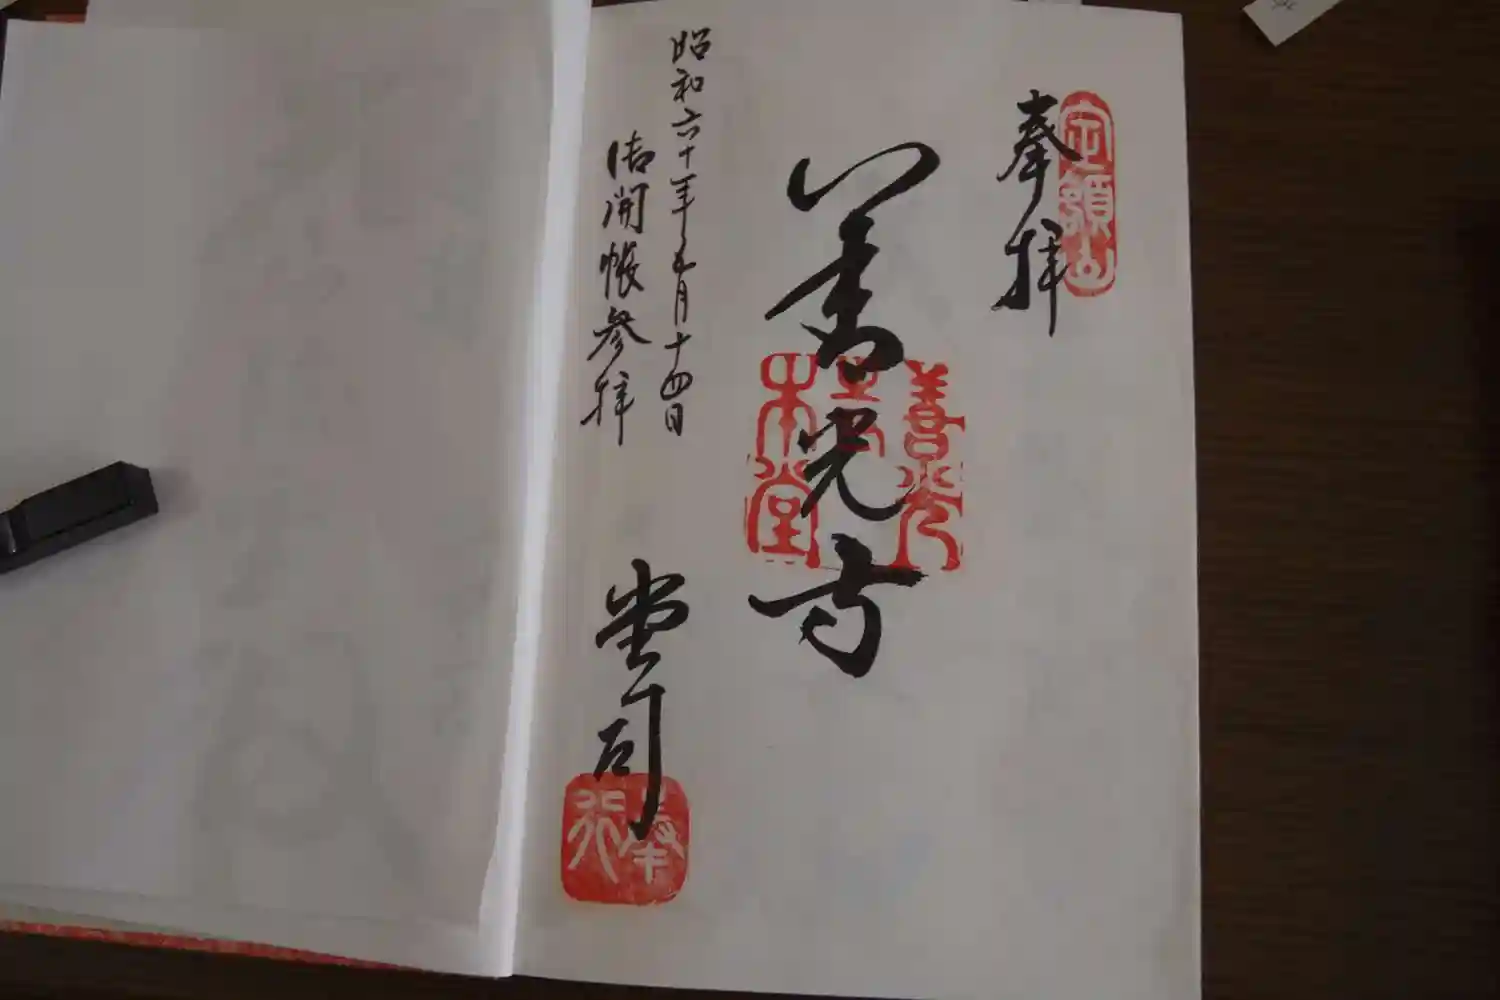 奉拝
定額山
善光寺
善光寺本堂
昭和六十年五月十四日
御開帳参拝
堂司
奉行